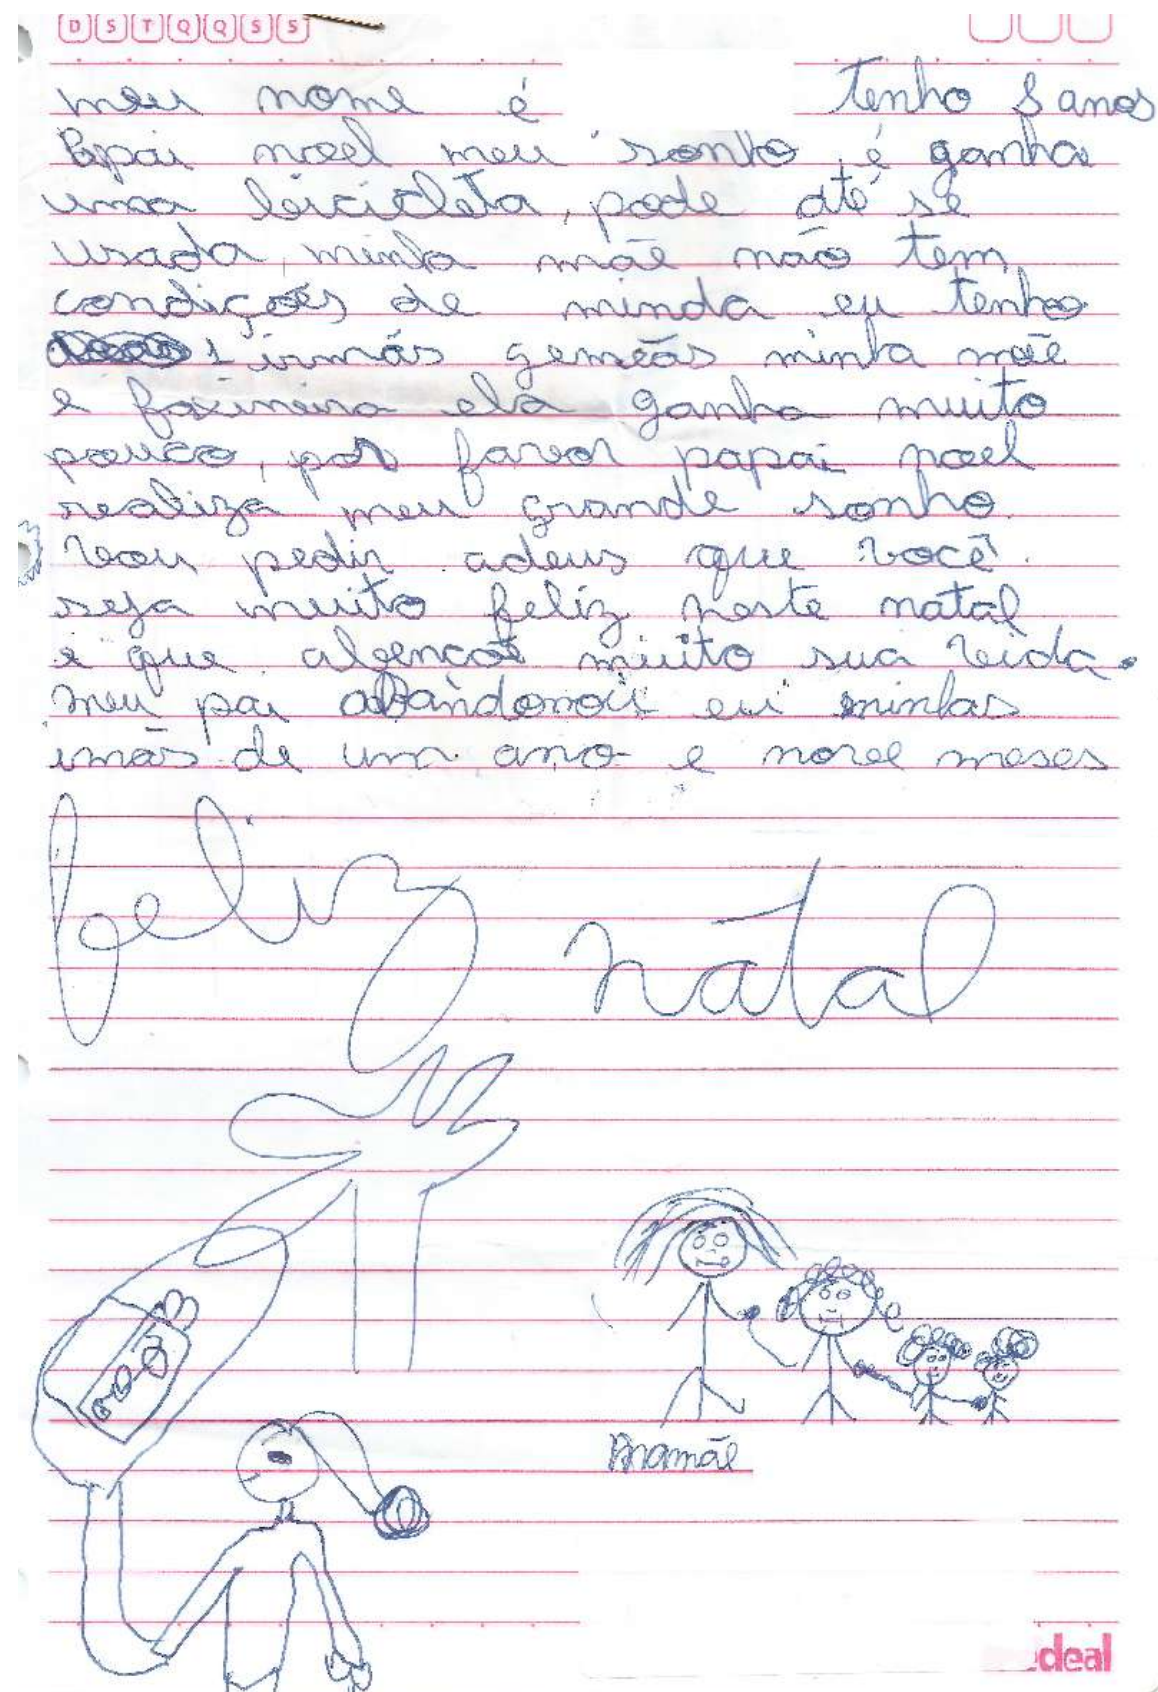 D S T Q Q S S
meu nome é tenho 8 anos
Papai noel meu sonho é ganha
uma bicicleta, pode até se
usada, minha mãe não tem
condições de minda eu tenho
irmãs gemeas minha mãe
e faxineira ela ganha muito
pouco, por favor papai noel
realiza meu grande sonho.
vou pedir adeus que você
seja muito feliz neste natal
e que abençoe muito sua vida.
meu pai abandonou eu minhas
imãs de um ano e novee meses
feliz natal
mamãe
deal